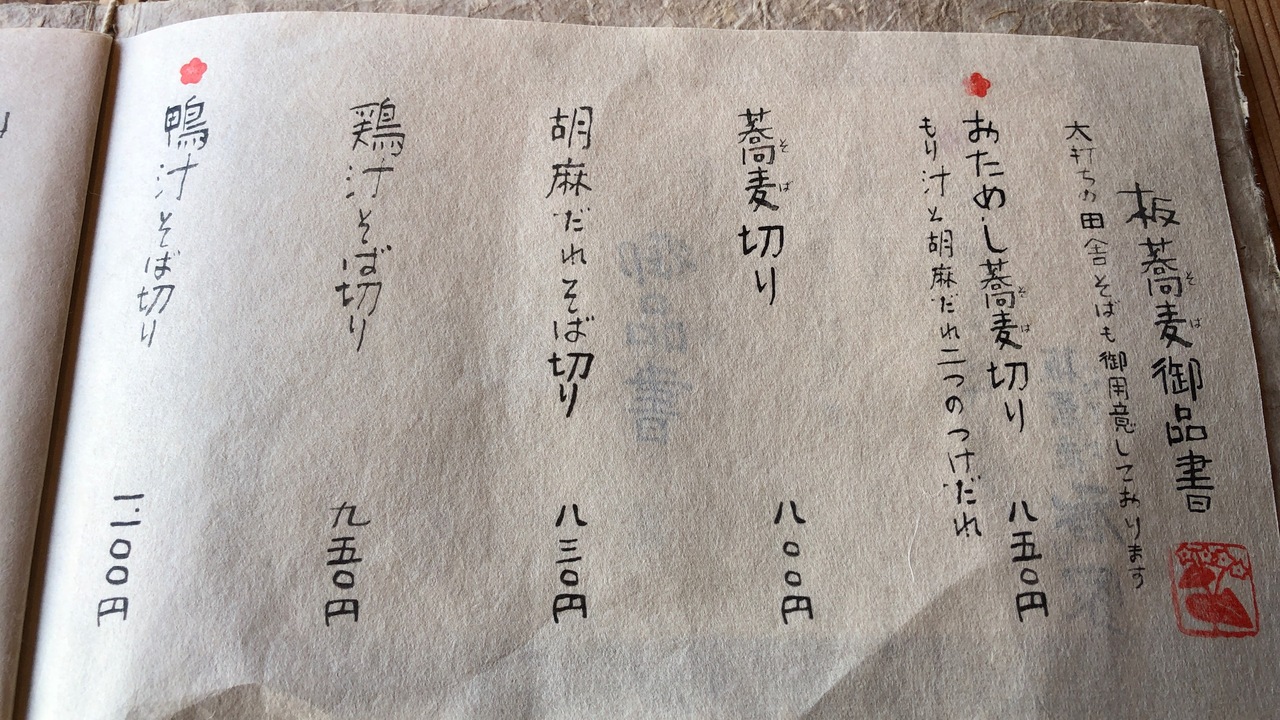 板蕎麦御品書
そば
太打ちの田舎そばも御用意しております
おためし蕎麦切り 八五〇円
そば
もり汁と胡麻だれ二つのつけだれ
蕎麦切り 八〇〇円
そば
胡麻だれそば切り 八三〇円
鶏汁そば切り 九五〇円
鴨汁そば切り 一、一〇〇円